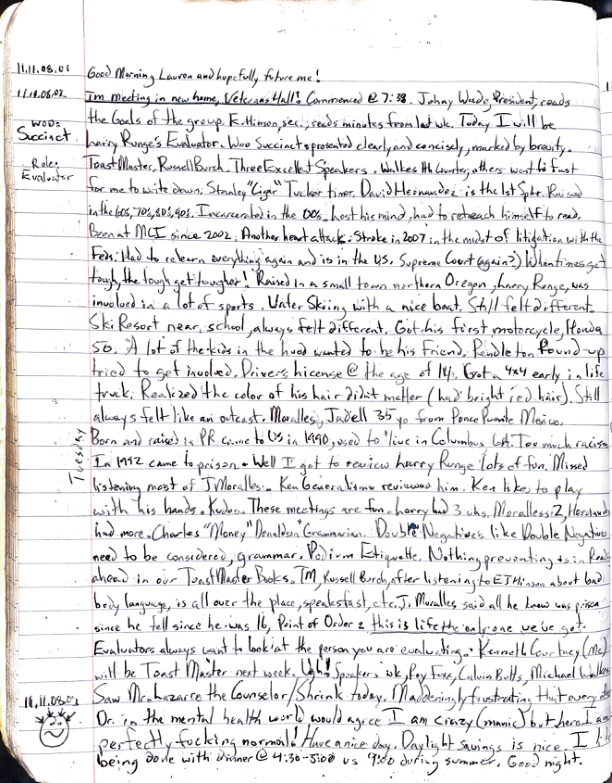 11.11.08.01 Good Morning Lauren and hopefully future me!
11.11.08.02 I'm meeting in new home, Veterans Hall! Commenced @ 7:38. Johny Wade, President, reads
the Goals of the group. E. Hinson, sec., reads minutes from last wk. Today I will be
WOD: Succinct Larry Runge's Evaluator. WOD Succinct = presented clearly and concisely, marked by brevity.
Role: Evaluator ToastMaster, Russell Burch. Three Excellent Speakers. Walkes Ah Counter, others went to fast
for me to write down. Stanley "Cigar" Tucker timer. David Hernandez is the 1st Spkr. Raised
in the 60s, 70's, 80's, 90s. Incarcerated in the 00s. Lost his mind, had to reteach himself to read.
Been at MCI since 2002. Another heart attack + Stroke in 2007 in the midst of litigation with the
Feds. Had to relearn everything again and is in the US. Supreme Court (again?) When times get
tough, the tough get tougher! Raised in a small town northern Oregon, Larry Runge, was
involved in a lot of sports. Water Skiing with a nice boat. Still felt different.
Ski Resort near school, always felt different. Got his first motorcycle, Honda
50. A lot of the kids in the hood wanted to be his friend. Pendleton Round-up
tried to get involved. Drivers License @ the age of 14. Got a 4x4 early in life
truck. Realized the color of his hair didn't matter (had bright red hair). Still
always felt like an outcast. Moralles, 35 yo from Ponce Mexico.
Tuesday Born and raised in PR came to US in 1990, used to live in Columbus GA. Too much racism
In 1992 came to prison. Well I got to review Larry Runge lots of fun. Missed
listening most of J Moralles. Ken reviewed him. Ken likes to play
with his hands. Kudos. These meetings are fun. Larry had 3 uhs. Moralles: 2, Hernandez
had more. Charles "Money" Donaldson Grammarian. Double Negatives like Double Negatives
need to be considered, grammar. Podium Etiquette. Nothing preventing us in Read
ahead in our ToastMaster Books. TM, Russell Burch, after listening to EJ Hinson about bad
body language, is all over the place, speaks fast, etc. J. Moralles said all he knew was prison
since he fell since he was 16, Point of Order: this is life the only one we've got.
Evaluators always want to look at the person you are evaluating. Kenneth Courtney (Me)
will be Toast Master next week. Ugh! Speakers wk, Roy Foxx, Calvin Butts, Michael Walkes
11.11.08.03 Saw Mr. Lazarre the Counselor/Shrink today. Maddeningly frustrating that every
Dr. in the mental health world would agree I am crazy (manic) but here I am
perfectly fucking normal! Have a nice day. Daylight savings is nice. I
being done with dinner @ 4:30-5:00 vs 9:00 during summer. Good night.